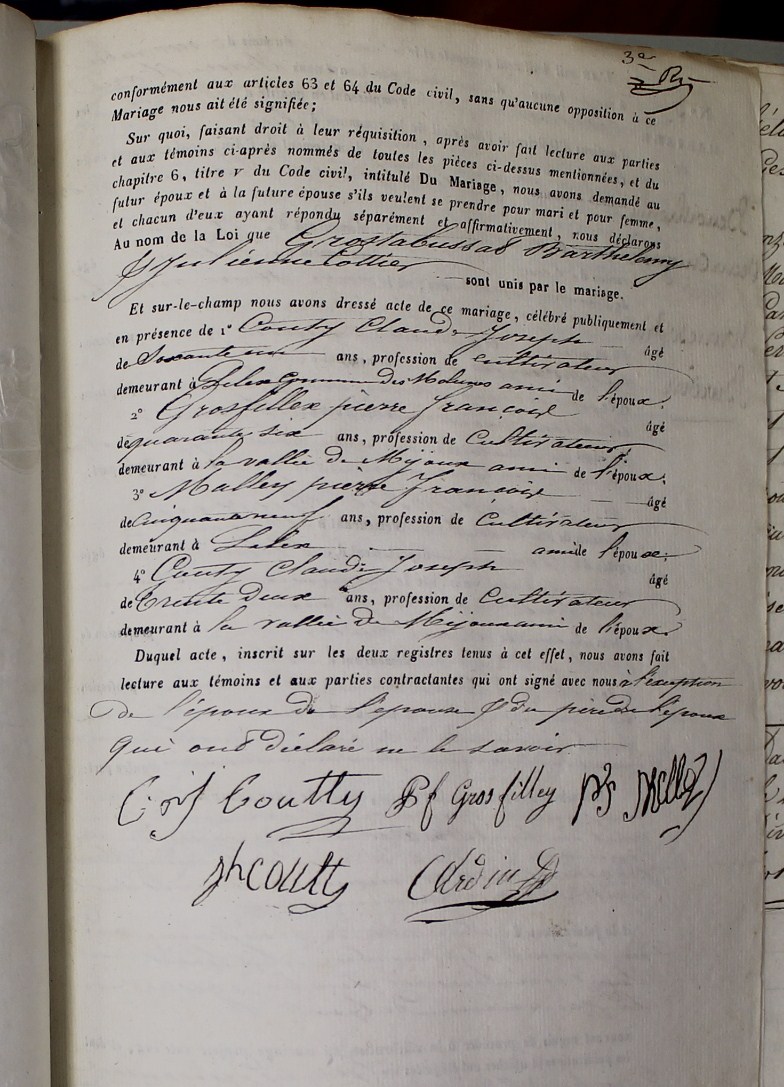 3e
conformément aux articles 63 et 64 du Code civil, sans qu'aucune opposition à ce
Mariage nous ait été signifiée;
Sur quoi, faisant droit à leur réquisition, après avoir fait lecture aux parties
et aux témoins ci-après nommés de toutes les pièces ci-dessus mentionnées, et du
chapitre 6, titre v du Code civil, intitulé Du Mariage, nous avons demandé au
futur époux et à la future épouse s'ils veulent se prendre pour mari et pour femme,
et chacun d'eux ayant répondu séparément et affirmativement, nous déclarons
Au nom de la Loi que Grostabussat Barthelemy
& Julienne Cottier sont unis par le mariage.
Et sur-le-champ nous avons dressé acte de ce mariage, célébré publiquement et
en présence de 1° Couty Claude Joseph âgé
de Soixante un ans, profession de cultivateur
demeurant à Lelex Commune des Molunes ami de l'époux.
2° Grosfillex pierre françois âgé
de quarante six ans, profession de Cultivateur
demeurant à la vallée de Mijoux ami de l'époux.
3° Malley pierre françois âgé
de Cinquante neuf ans, profession de Cultivateur
demeurant à Lelex ami de l'époux.
4° Couty Claude Joseph âgé
de trente deux ans, profession de Cultivateur
demeurant à la vallée de Mijoux ami de l'époux.
Duquel acte, inscrit sur les deux registres tenus à cet effet, nous avons fait
lecture aux témoins et aux parties contractantes qui ont signé avec nous à l'exception
De l'époux De l'epouse & du père de l'époux
qui ont déclaré ne le savoir
Coutty Pf Grosfilley
Coutty